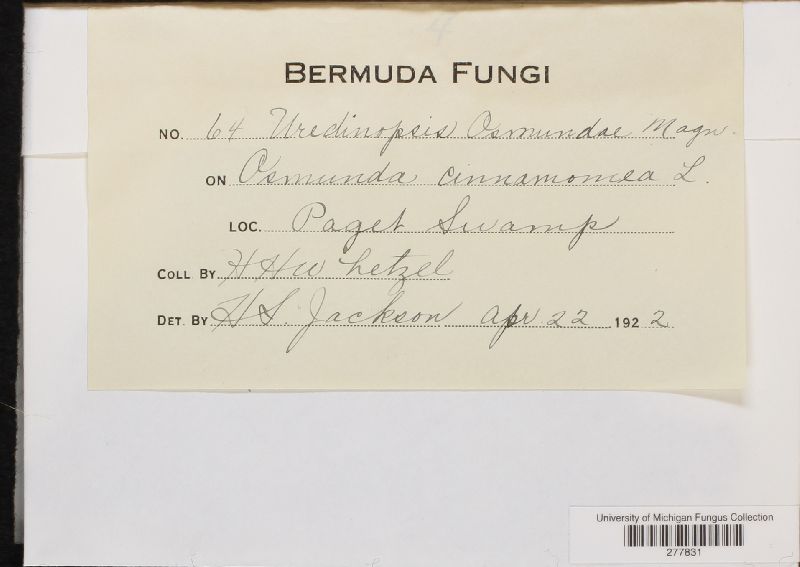 4
BERMUDA FUNGI
NO. 64 Uredinopsis Osmundae Magn.
ON Osmunda cinnamomea L.
LOC. Paget Swamp
COLL. BY HHWhetzel
DET. BY H.S. Jackson Apr 22 1922
University of Michigan Fungus Collection
277831